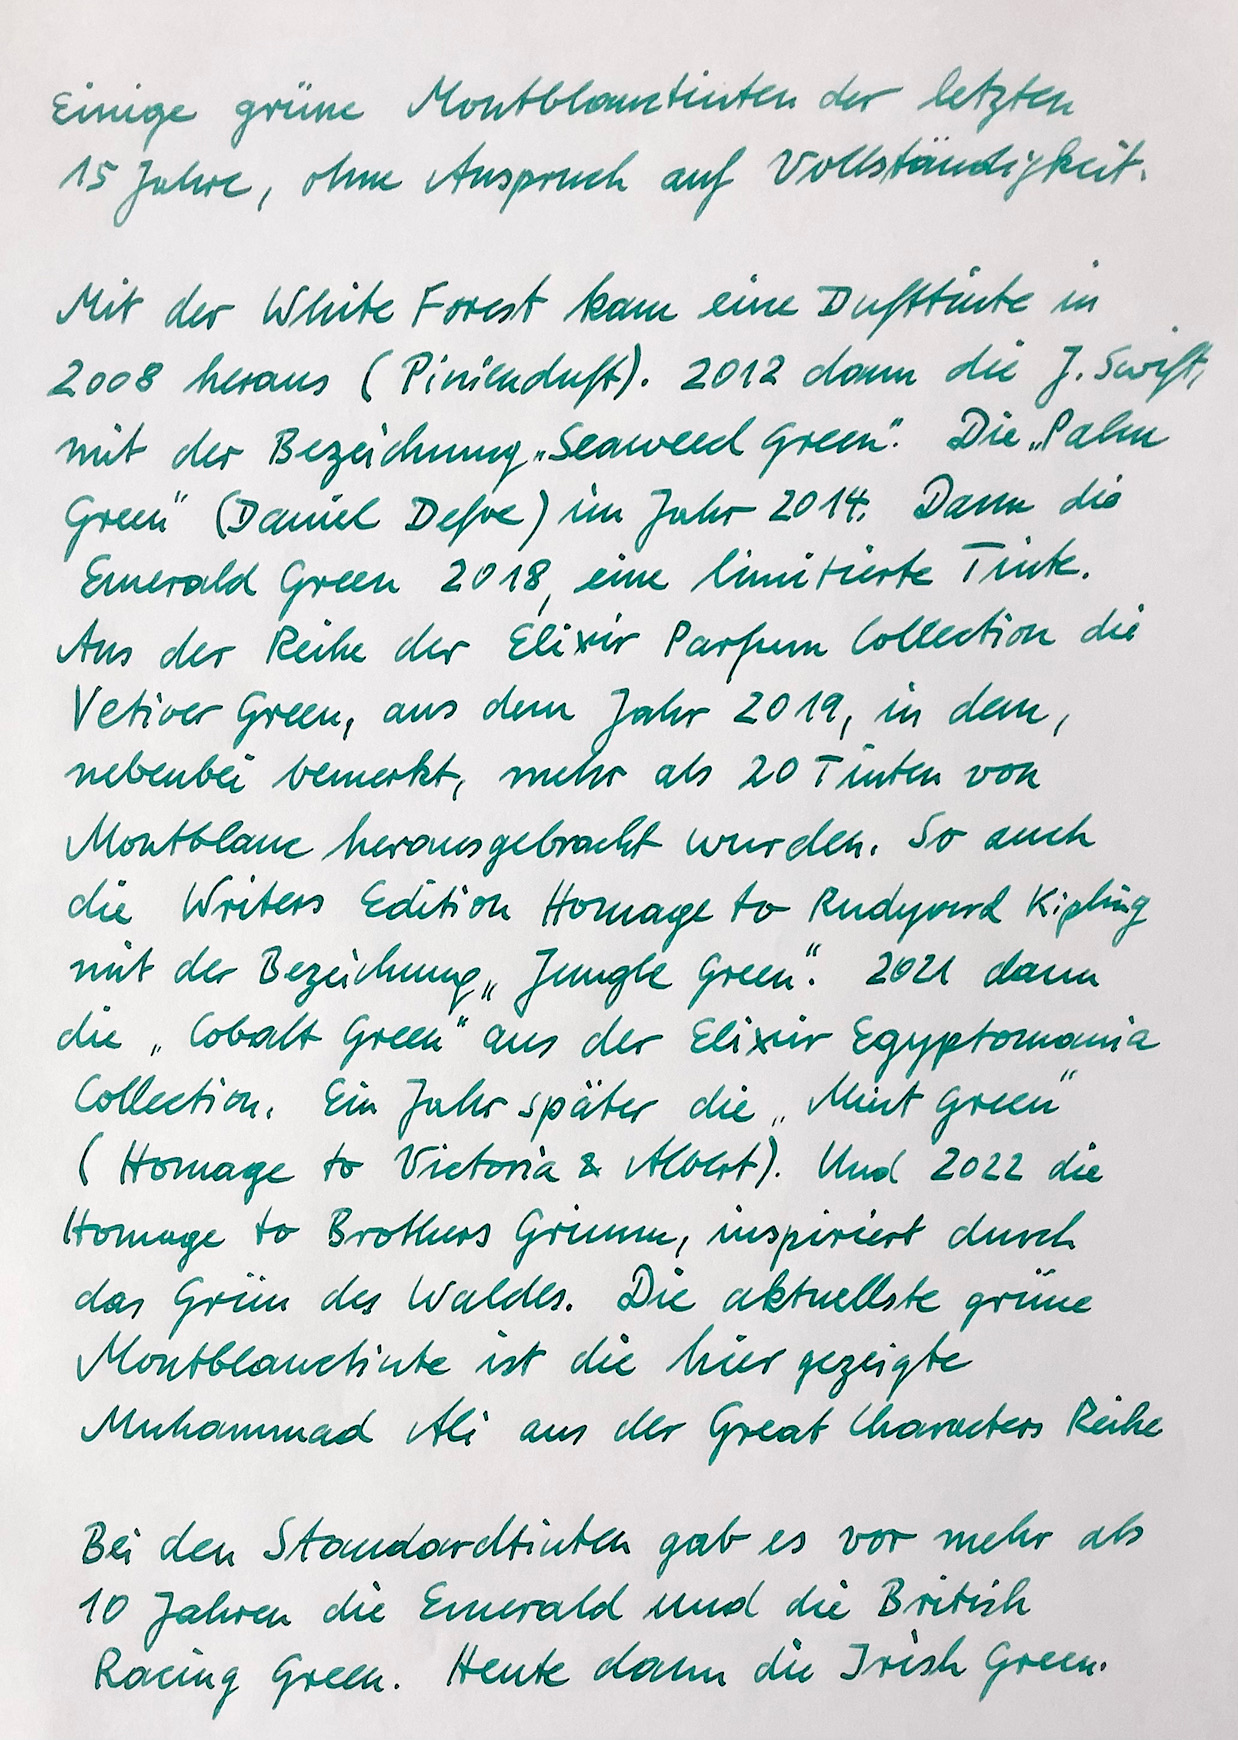 Einige grüne Montblanctinten der letzten
15 Jahre, ohne Anspruch auf Vollständigkeit.
Mit der White Forest kam eine Dufttinte in
2008 heraus (Pinienduft). 2012 dann die J. Swift,
mit der Bezeichnung „Seaweed Green“. Die „Palm
Green“ (Daniel Defoe) im Jahr 2014. Dann die
Emerald Green 2018, eine limitierte Tinte.
Aus der Reihe der Elixir Parfum Collection die
Vetiver Green, aus dem Jahr 2019, in dem,
nebenbei bemerkt, mehr als 20 Tinten von
Montblanc herausgebracht wurden. So auch
die Writers Edition Homage to Rudyard Kipling
mit der Bezeichnung „Jungle Green“. 2021 dann
die „Cobalt Green“ aus der Elixir Egyptomania
Collection. Ein Jahr später die „Mint Green“
(Homage to Victoria & Albert). Und 2022 die
Homage to Brothers Grimm, inspiriert durch
das Grün des Waldes. Die aktuellste grüne
Montblanctinte ist die hier gezeigte
Muhammad Ali aus der Great Characters Reihe
Bei den Standardtinten gab es vor mehr als
10 Jahren die Emerald und die British
Racing Green. Heute dann die Irish Green.